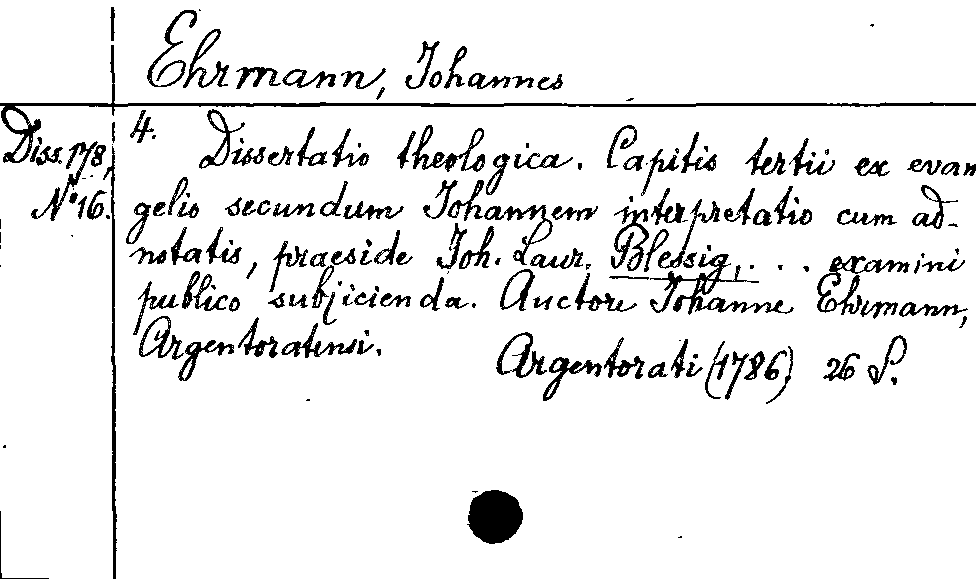 Ehrmann, Johannes
Diss. 178,
No 16.
4. Dissertatio theologica. Capitis tertii ex evan
gelio secundum Johannem interpretatio cum ad-
notatis, praeside Joh. Laur. Blessig, . . . examini
publico subjicienda. Auctore Johanne Ehrmann,
Argentoratensi.
Argentorati (1786) 26 S.